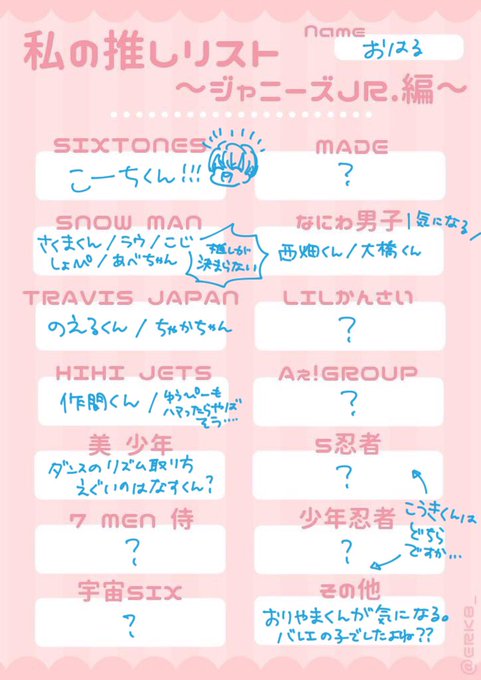 私の推しリスト
Name
おはる
〜ジャニーズJR.編〜
SIXTONES
こーちくん!!!
MADE
?
SNOW MAN
さくまくん/ラウ/こじ
しょぴ/あべちゃん
推しが
決まらない
なにわ男子
気になる
西畑くん/大橋くん
TRAVIS JAPAN
のえるくん/ちゃかちゃん
LILかんさい
?
HIHI JETS
作間くん/ゆうぴーも
ハマったらやば
そう····
Aぇ!GROUP
?
美 少年
ダンスのリズム取り方
えぐいのはなすくん?
5忍者
?
7 MEN 侍
?
少年忍者
?
こうきくんは
どちら
ですか…
宇宙SIX
?
その他
おりやまくんが気になる。
バレエの子でしたよね??
@ERK8_